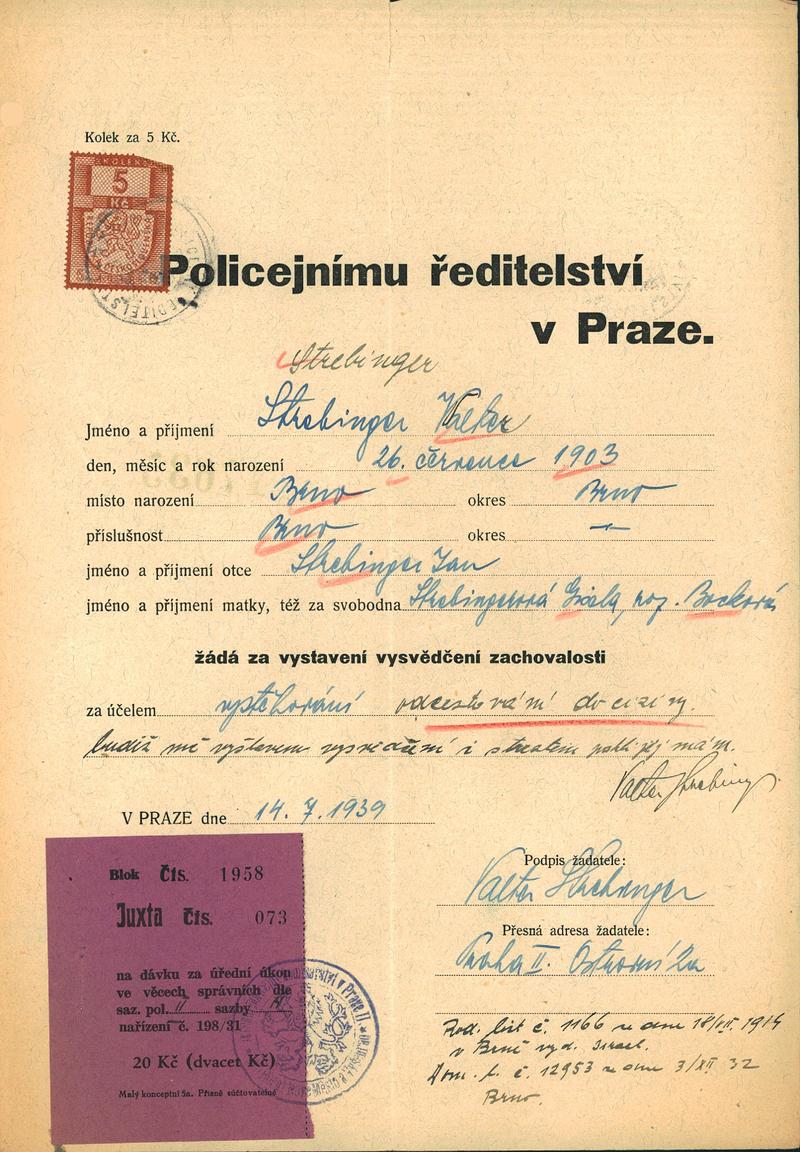 Kolek za 5 Kč.
KOLEK
5
Kč
Policejnímu ředitelství
v Praze.
Strebinger
Jméno a příjmení Strebinger Valter
den, měsíc a rok narození 26. července 1903
místo narození Brno okres Brno
příslušnost Brno okres —
jméno a příjmení otce Strebinger Jan
jméno a příjmení matky, též za svobodna Strebingerová Gisela, roz. Bocková
žádá za vystavení vysvědčení zachovalosti
za účelem vystěhování odcestování do ciziny.
budiž mé vysvědčení i
Valter Strebinger
V PRAZE dne 14. 7. 1939
Podpis žadatele:
Valter Strebinger
Přesná adresa žadatele:
Praha II. Ostrovní 2a
Blok Čís. 1958
Juxta Čís. 073
na dávku za úřední úkon
ve věcech správních dle
saz. pol. sazby
nařízení č. 198/31
20 Kč (dvacet Kč)
Malý konceptní 5a. Přísně súčtovatelné
v Praze II.
Rod. list č. 1166 ze dne 18/VII. 1914
v Brně vyd. Israel.
Dom. l. č. 12953 ze dne 3/XII 32
Brno.